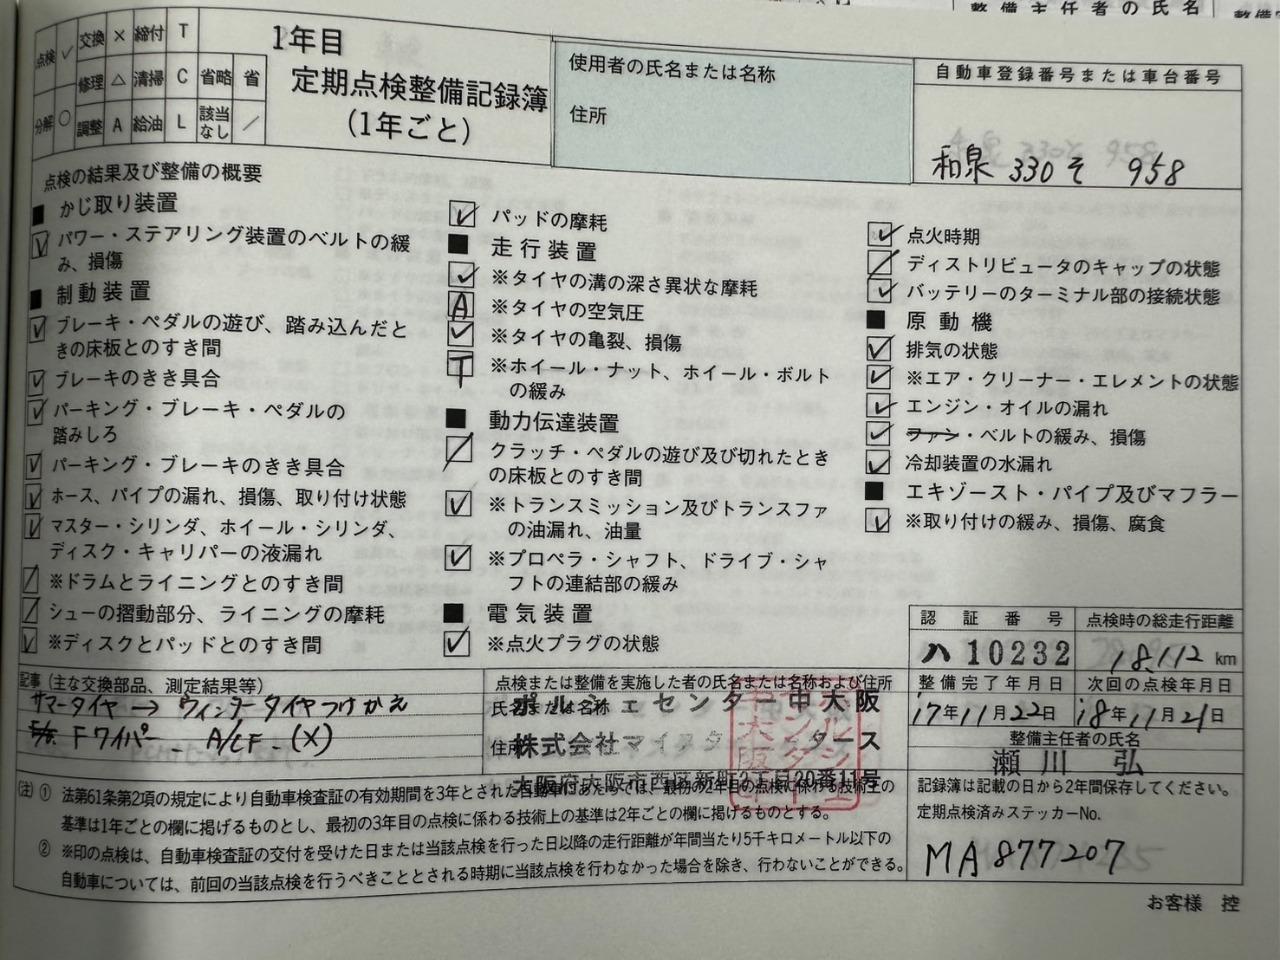 整備主任者の氏名
点検 ✓ 交換 × 締付 T
修理 △ 清掃 C 省略 省
分解 ○ 調整 A 給油 L 該当なし ／
1年目
定期点検整備記録簿
(1年ごと)
使用者の氏名または名称
住所
自動車登録番号または車台番号
和泉 330 そ 958
点検の結果及び整備の概要
■ かじ取り装置
✓ パワー・ステアリング装置のベルトの緩
み、損傷
■ 制動装置
✓ ブレーキ・ペダルの遊び、踏み込んだと
きの床板とのすき間
✓ ブレーキのきき具合
✓ パーキング・ブレーキ・ペダルの
踏みしろ
✓ パーキング・ブレーキのきき具合
✓ ホース、パイプの漏れ、損傷、取り付け状態
✓ マスター・シリンダ、ホイール・シリンダ、
ディスク・キャリパーの液漏れ
／ ※ドラムとライニングとのすき間
／ シューの摺動部分、ライニングの摩耗
✓ ※ディスクとパッドとのすき間
✓ パッドの摩耗
■ 走行装置
✓ ※タイヤの溝の深さ異状な摩耗
A ※タイヤの空気圧
✓ ※タイヤの亀裂、損傷
T ※ホイール・ナット、ホイール・ボルト
の緩み
■ 動力伝達装置
／ クラッチ・ペダルの遊び及び切れたとき
の床板とのすき間
✓ ※トランスミッション及びトランスファ
の油漏れ、油量
✓ ※プロペラ・シャフト、ドライブ・シャ
フトの連結部の緩み
■ 電気装置
✓ ※点火プラグの状態
✓ 点火時期
／ ディストリビュータのキャップの状態
✓ バッテリーのターミナル部の接続状態
■ 原動機
✓ 排気の状態
✓ ※エア・クリーナー・エレメントの状態
✓ エンジン・オイルの漏れ
✓ ファン・ベルトの緩み、損傷
✓ 冷却装置の水漏れ
■ エキゾースト・パイプ及びマフラー
✓ ※取り付けの緩み、損傷、腐食
認証番号
ハ 10232
点検時の総走行距離
18112 km
整備完了年月日
17年11月22日
次回の点検年月日
18年11月21日
整備主任者の氏名
瀬川 弘
記事 (主な交換部品、測定結果等)
サマータイヤ → ウィンタータイヤつけかえ
Fワイパー - A/CF - (×)
点検または整備を実施した者の氏名または名称および住所
氏名または名称
ポルシェセンター中大阪
住所
大阪府大阪市西区新町2丁目20番11号
(注) ① 法第61条第2項の規定により自動車検査証の有効期間を3年とされた自動車にあたっては、最初の2年目の点検に係わる技術上の
基準は1年ごとの欄に掲げるものとし、最初の3年目の点検に係わる技術上の基準は2年ごとの欄に掲げるものとする。
② ※印の点検は、自動車検査証の交付を受けた日または当該点検を行った日以降の走行距離が年間当たり5千キロメートル以下の
自動車については、前回の当該点検を行うべきこととされる時期に当該点検を行わなかった場合を除き、行わないことができる。
記録簿は記載の日から2年間保存してください。
定期点検済みステッカーNo.
MA877207
お客様 控